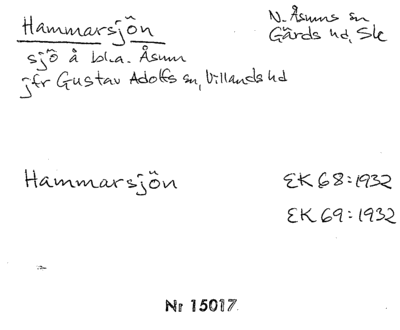 Hammarsjön
N. Åsums sn
Gärds hd, Sk
sjö å bl.a. Åsum
jfr Gustav Adolfs sn, Villands hd
Hammarsjön
EK 68:1932
EK 69:1932
Nr 15017